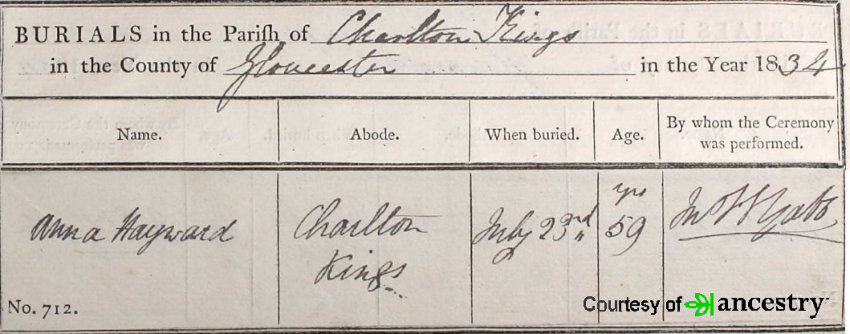 BURIALS in the Parish of Charlton Kings
in the County of Gloucester in the Year 1834
Name. Abode. When buried. Age. By whom the Ceremony was performed.
Anna Hayward Charlton Kings July 23rd yrs 59
No. 712.
Courtesy of ancestry